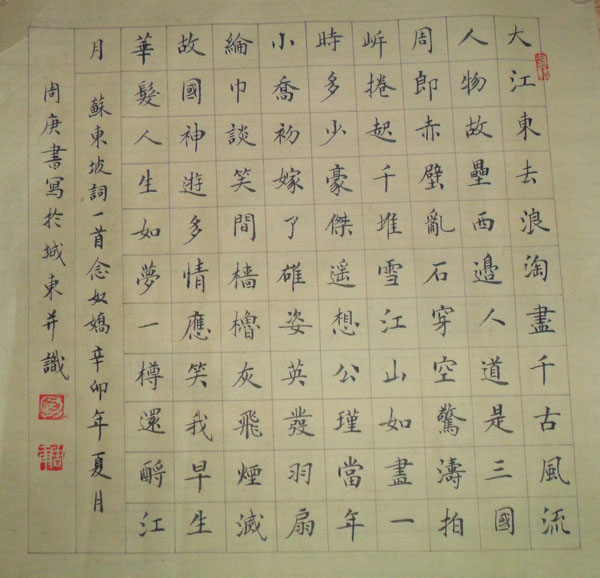 大江東去浪淘盡千古風流
人物故壘西邊人道是三國
周郎赤壁亂石穿空驚濤拍
岍捲起千堆雪江山如畫一
時多少豪傑遥想公瑾當年
小喬初嫁了雄姿英發羽扇
綸巾談笑間檣櫓灰飛煙滅
故國神遊多情應笑我早生
華髮人生如夢一樽還酹江
月 蘇東坡詞一首念奴嬌辛卯年夏月
周庚書寫於城東并識